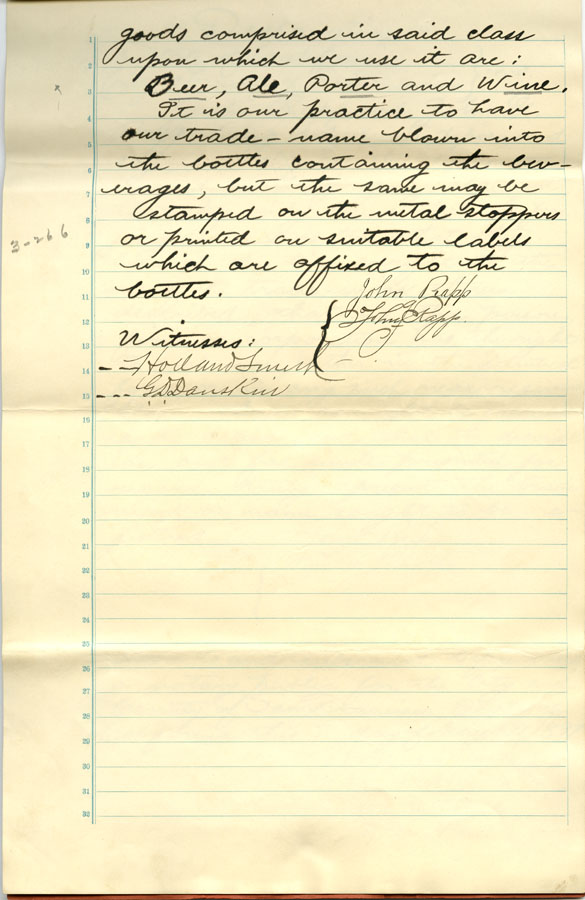 goods comprised in said class
upon which we use it are:
Beer, Ale, Porter and Wine.
It is our practice to have
our trade-name blown into
the bottles containing the bev-
erages, but the same may be
stamped on the metal stoppers
or printed on suitable labels
which are affixed to the
bottles.
John Rapp
John Rapp.
Witnesses:
Holland Smith
G.D. Danskin
3-266
1
2
3
4
5
6
7
8
9
10
11
12
13
14
15
16
17
18
19
20
21
22
23
24
25
26
27
28
29
30
31
32